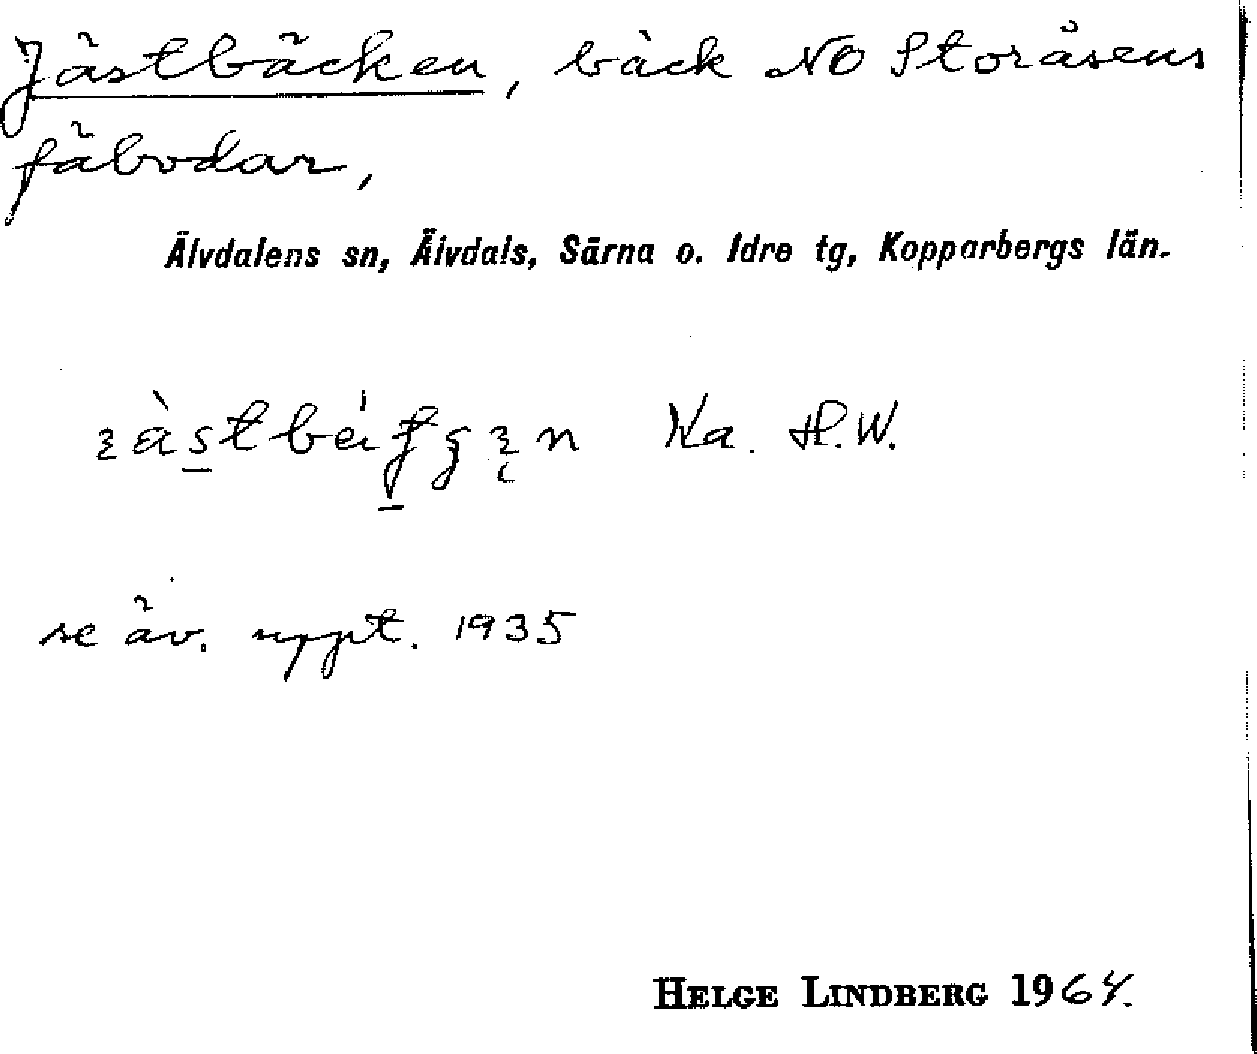 Jästbäcken, bäck NO Storåsens
fäbodar,
Älvdalens sn, Älvdals, Särna o. Idre tg, Kopparbergs län.
Ka. H.W.
se äv. uppt. 1935
HELGE LINDBERG 1964.